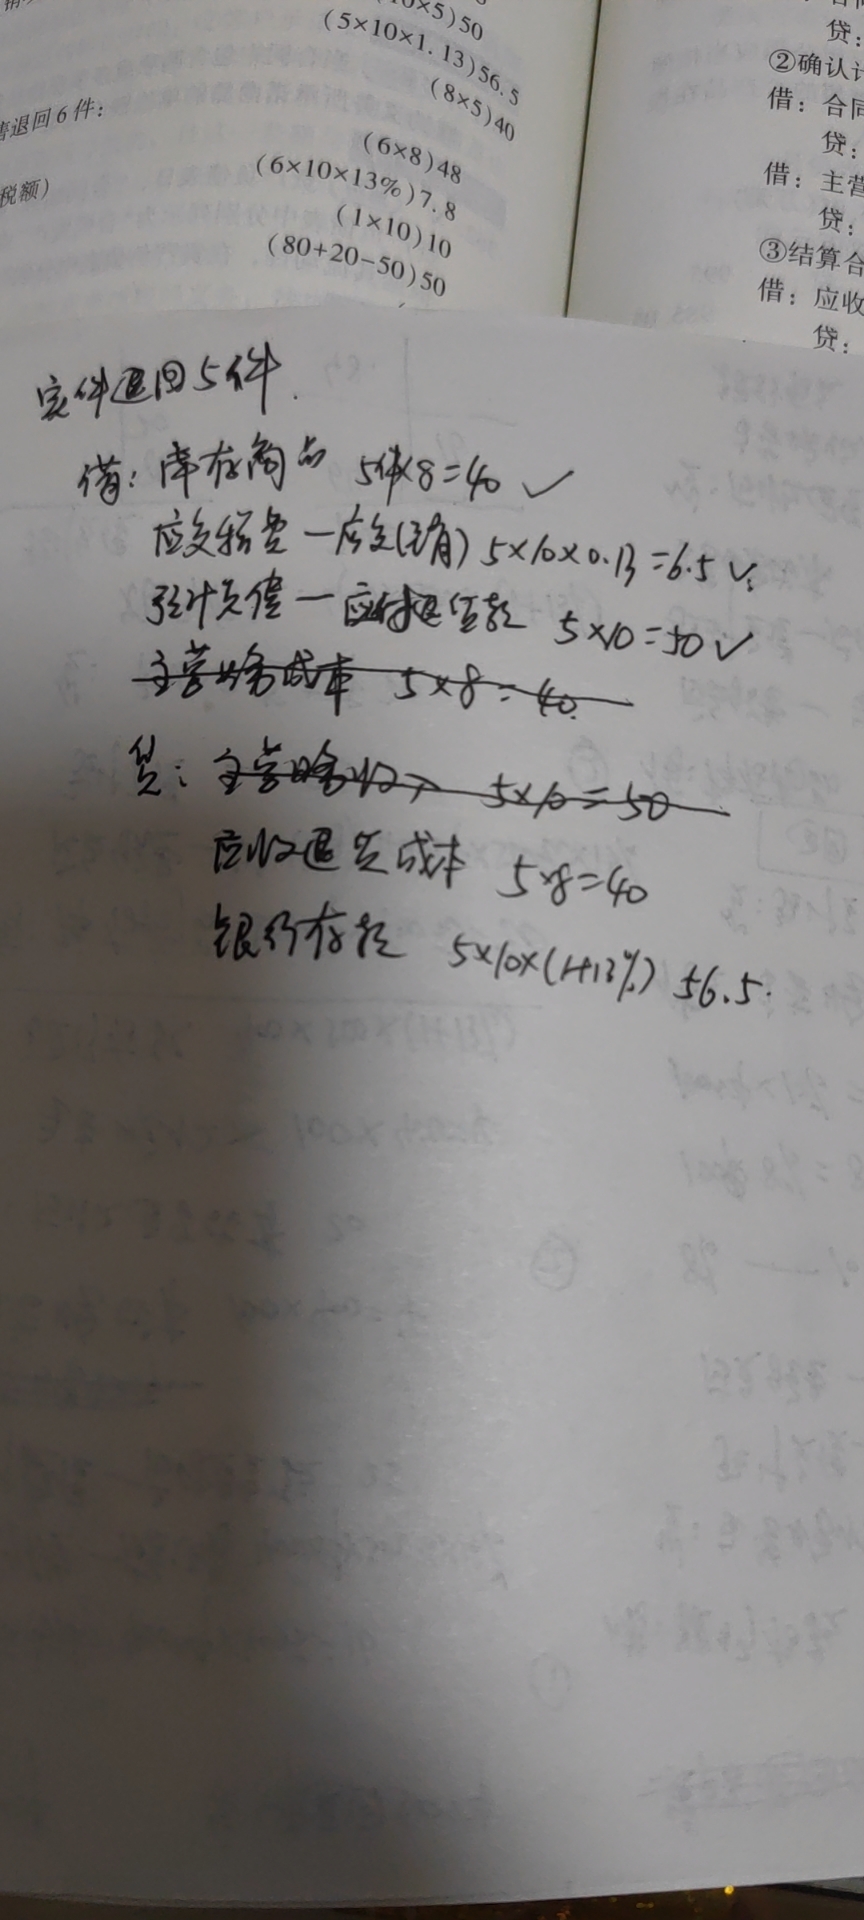 10×5)50
(5×10×1.13)56.5
(8×5)40
退回6件：
(6×8)48
税额)
(6×10×13%)7.8
(1×10)10
(80+20-50)50
贷：
②确认
借：合同
贷：
借：主营
贷：
③结算合
借：应收
贷：
实件退回5件.
借：库存商品 5件×8=40 ✓
应交税费—应交(销) 5×10×0.13=6.5 ✓
预计负债—应付退货款 5×10=50 ✓
主营业务成本 5×8=40
贷：主营业务收入 5×10=50
应收退货成本 5×8=40
银行存款 5×10×(1+13%) 56.5.